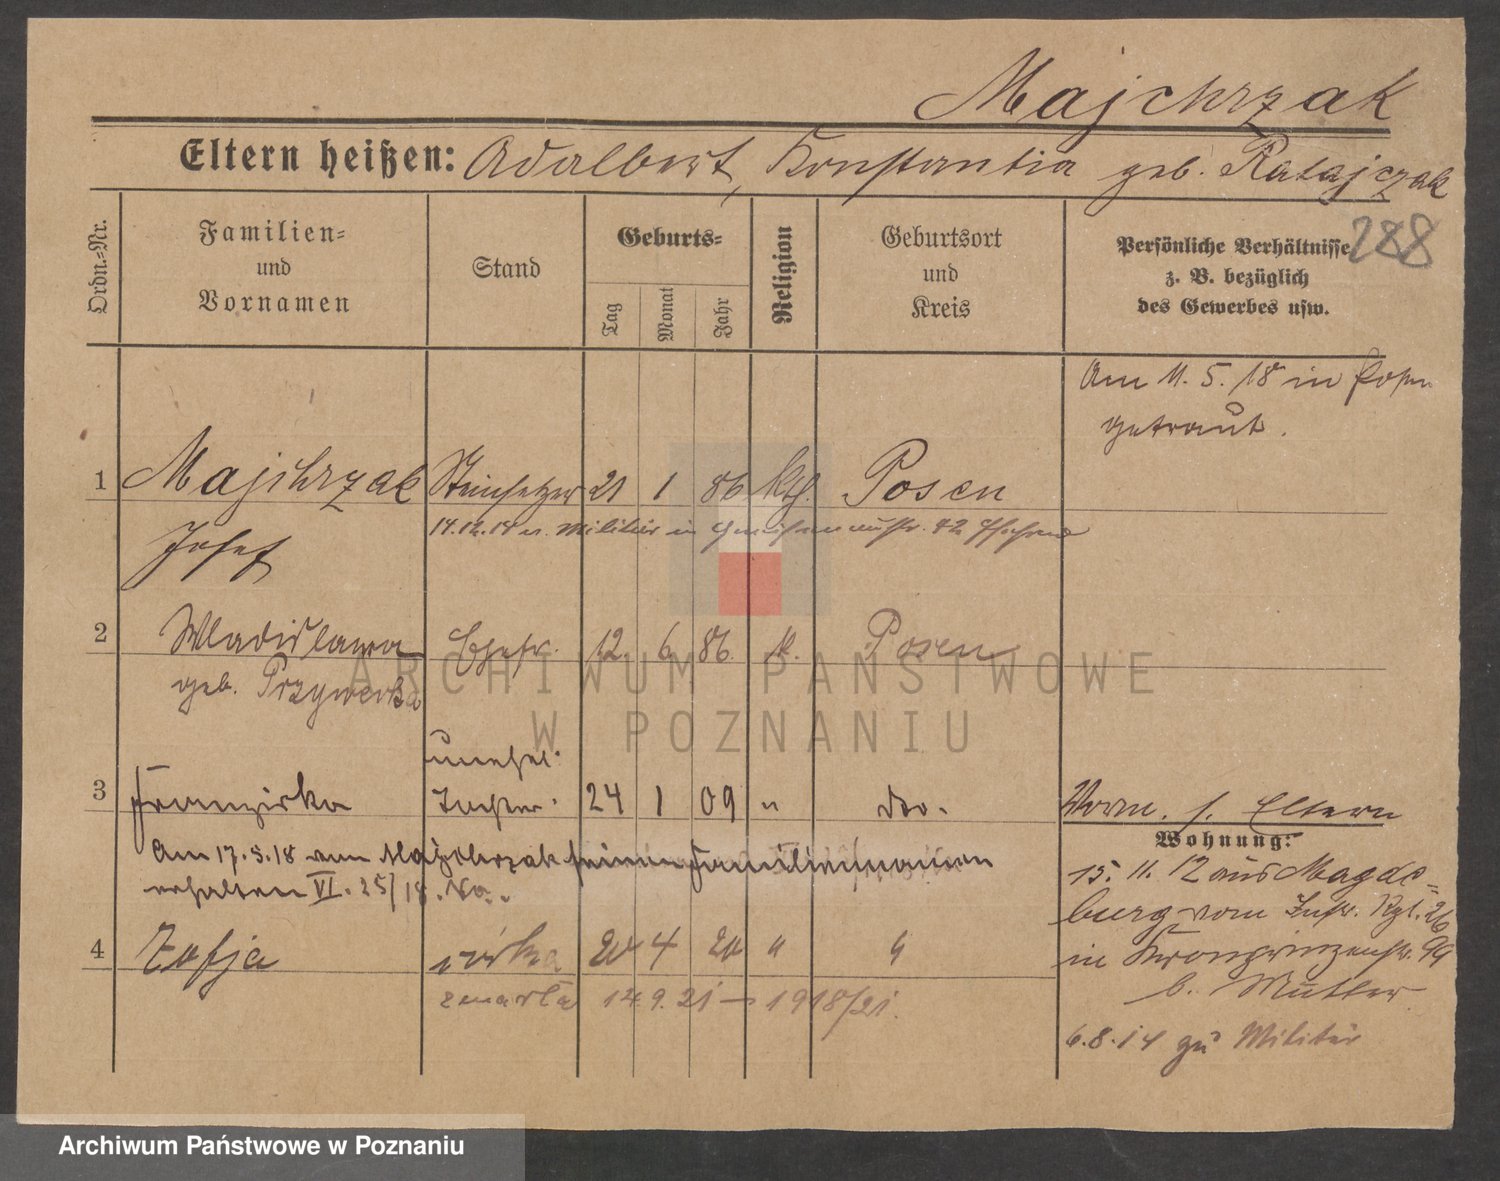 Majchrzak
Eltern heißen: Adalbert, Konstantia geb. Ratajczak
288
Ordn.=Nr.
Familien=
und
Vornamen
Stand
Geburts=
Tag
Monat
Jahr
Religion
Geburtsort
und
Kreis
Persönliche Verhältnisse
z. B. bezüglich
des Gewerbes usw.
Am 11. 5. 18 in Posen
getraut.
1 Majchrzak Steinsetzer 21 1 86 kth. Posen
Josef
14.12.18 v. Militär in 42
2 Wladislawa Ehefr. 12. 6. 86. k. Posen
geb. Przywecka
unehel.
3 Franziska Tochter. 24 1 09 " do.
Am 17.5.18 von Majchrzak seinen Familiennamen
erhalten VI. 25/18.
4 Zofja córka 20 4 20 " "
zmarła 14.9.21 – 1918/21.
Vorm. s. Eltern
Wohnung:
15. 11. 12 aus Magde=
burg vom Infr. Rgt. 26
in Kronprinzenstr. 99
b. Mutter
6.8.14 zu Militär
ARCHIWUM PAŃSTWOWE
W POZNANIU
Archiwum Państwowe w Poznaniu